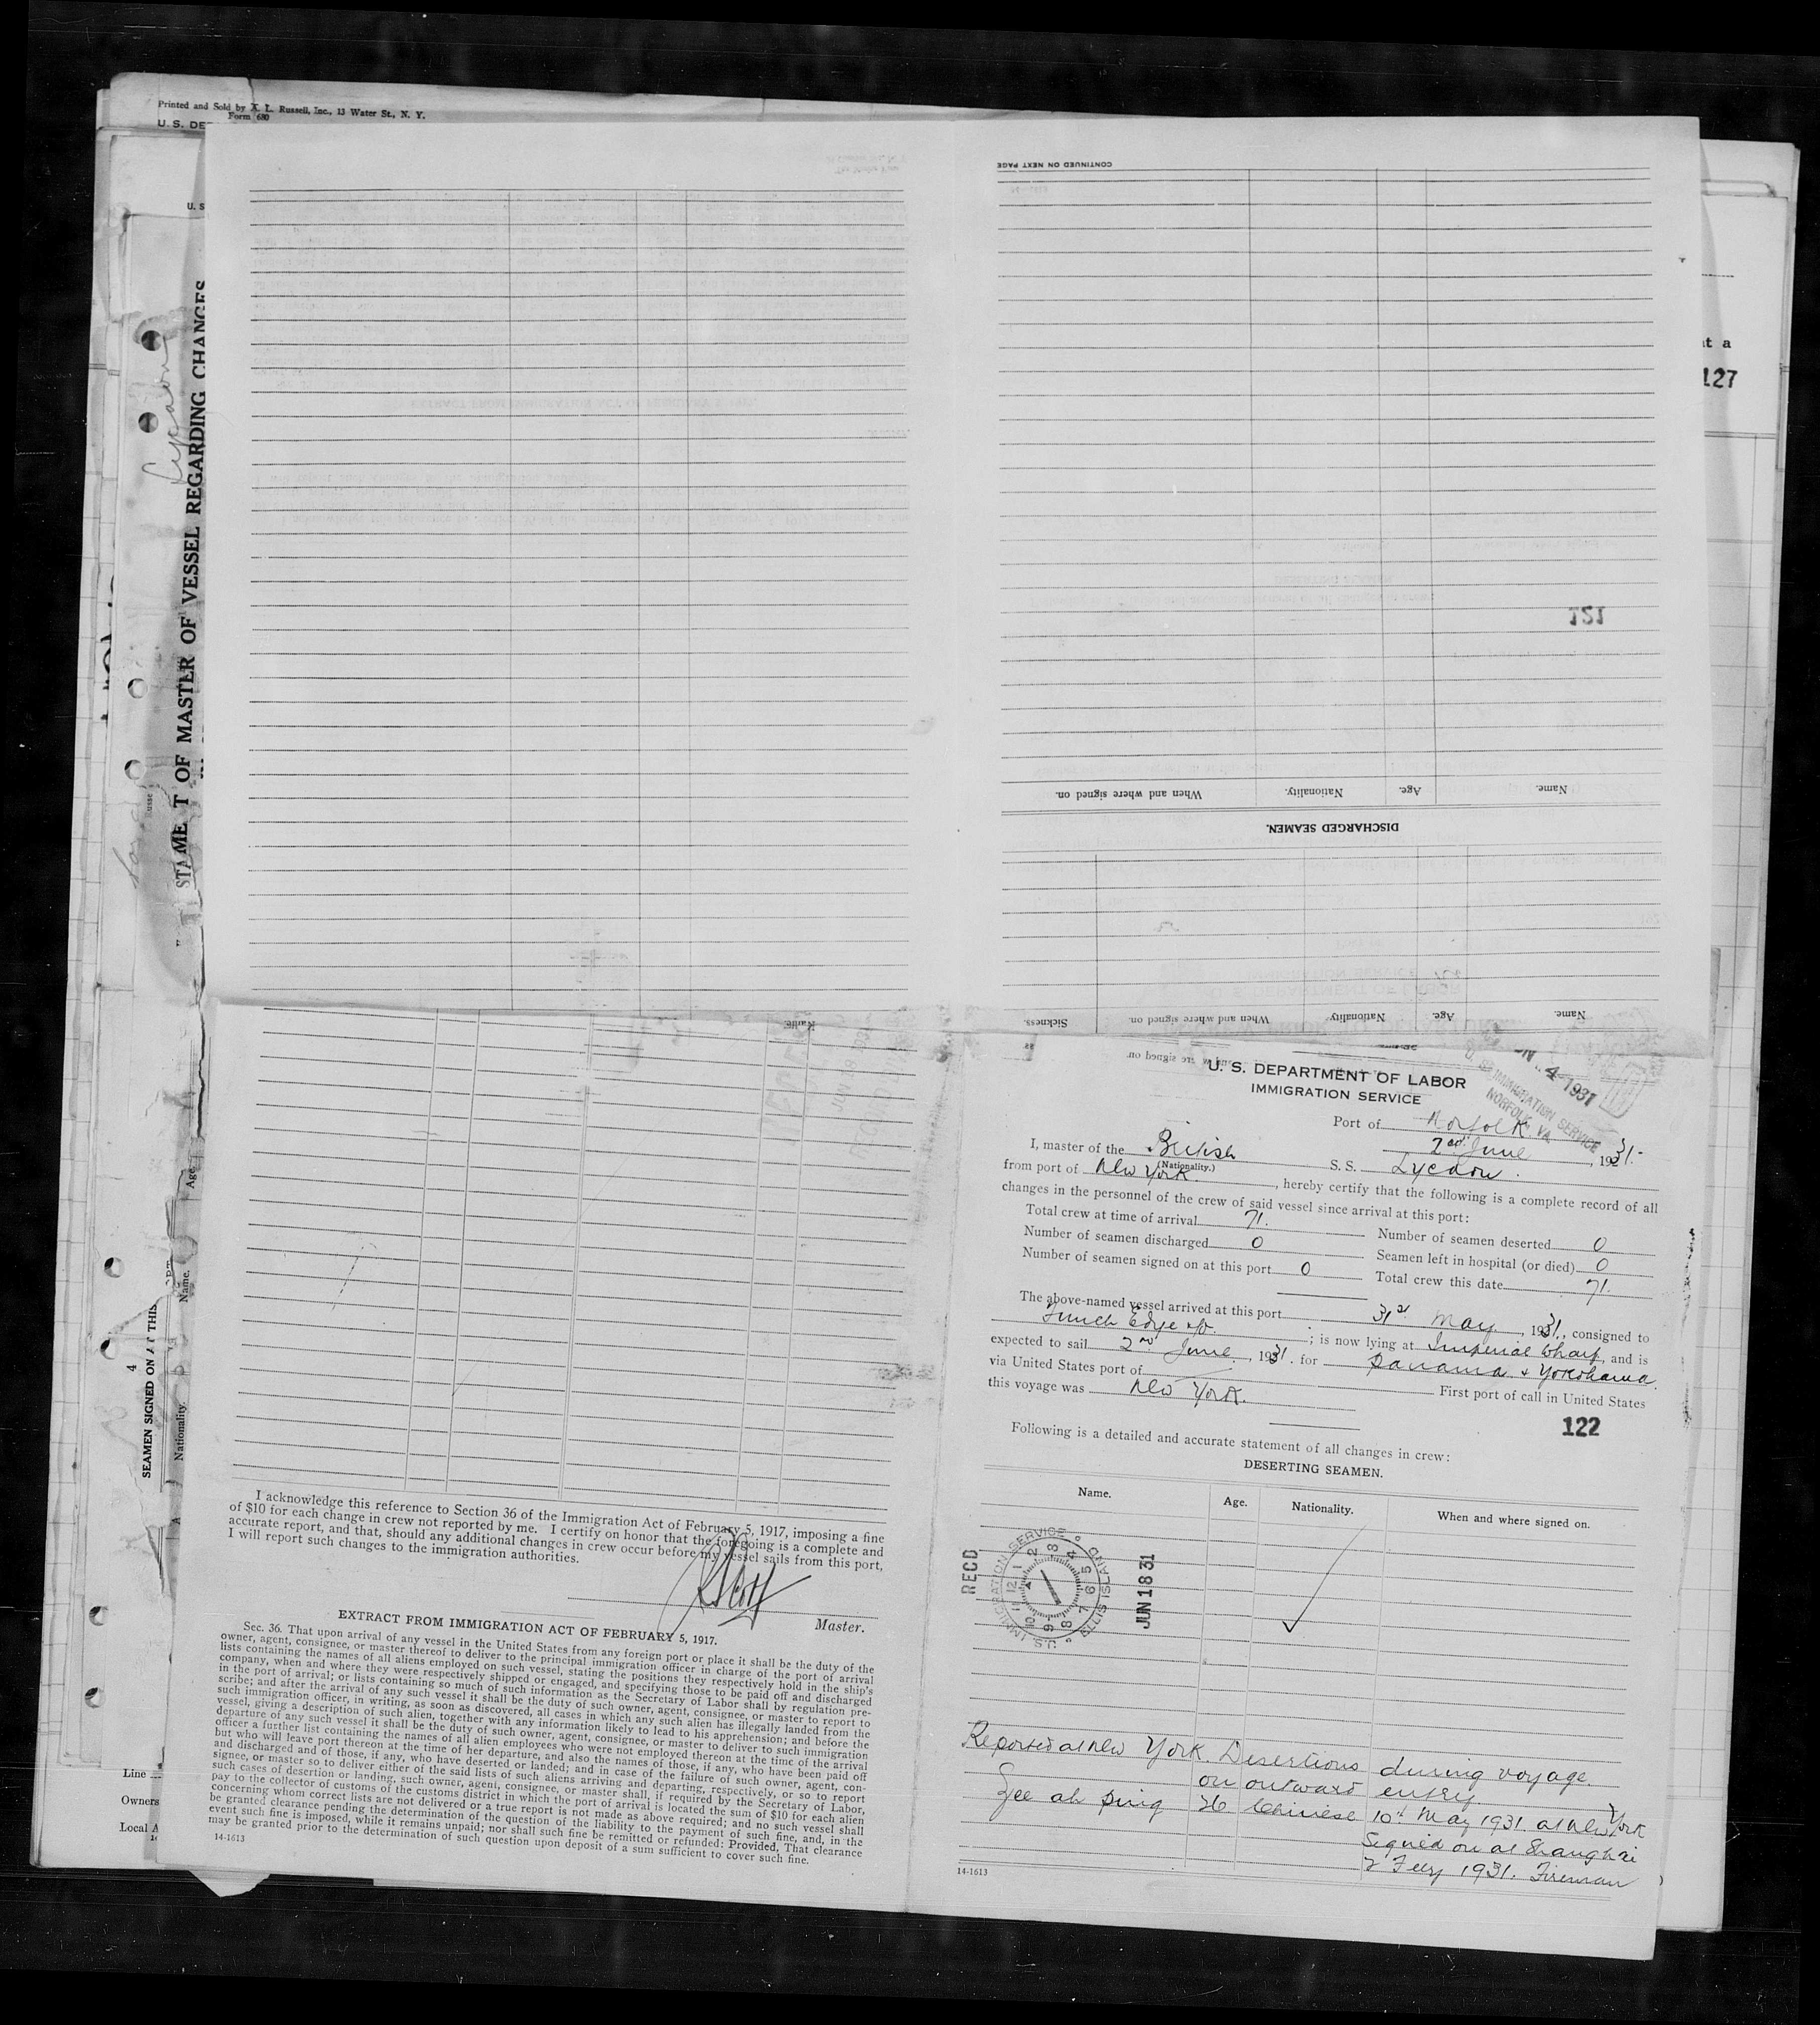 Printed and Sold by X. L. Russell, Inc., 13 Water St., N. Y.
Form 680
U. S. DE
U. S
STA ME T OF MASTER OF VESSEL REGARDING CHANGES
SEAMEN SIGNED ON AT THIS
4
Nationality.
Name.
Age.
Line
Owners
Local A
t a
127
CONTINUED ON NEXT PAGE
121
Name. Age. Nationality. When and where signed on.
DISCHARGED SEAMEN.
Name. Age. Nationality When and where signed on. Sickness.
Name.
I acknowledge this reference to Section 36 of the Immigration Act of February 5, 1917, imposing a fine
of $10 for each change in crew not reported by me. I certify on honor that the foregoing is a complete and
accurate report, and that, should any additional changes in crew occur before my vessel sails from this port,
I will report such changes to the immigration authorities.
Master.
EXTRACT FROM IMMIGRATION ACT OF FEBRUARY 5, 1917.
Sec. 36. That upon arrival of any vessel in the United States from any foreign port or place it shall be the duty of the
owner, agent, consignee, or master thereof to deliver to the principal immigration officer in charge of the port of arrival
lists containing the names of all aliens employed on such vessel, stating the positions they respectively hold in the ship's
company, when and where they were respectively shipped or engaged, and specifying those to be paid off and discharged
in the port of arrival; or lists containing so much of such information as the Secretary of Labor shall by regulation pre-
scribe; and after the arrival of any such vessel it shall be the duty of such owner, agent, consignee, or master to report to
such immigration officer, in writing, as soon as discovered, all cases in which any such alien has illegally landed from the
vessel, giving a description of such alien, together with any information likely to lead to his apprehension; and before the
departure of any such vessel it shall be the duty of such owner, agent, consignee, or master to deliver to such immigration
officer a further list containing the names of all alien employees who were not employed thereon at the time of the arrival
but who will leave port thereon at the time of her departure, and also the names of those, if any, who have been paid off
and discharged and of those, if any, who have deserted or landed; and in case of the failure of such owner, agent, con-
signee, or master so to deliver either of the said lists of such aliens arriving and departing, respectively, or so to report
such cases of desertion or landing, such owner, agent, consignee, or master shall, if required by the Secretary of Labor,
pay to the collector of customs of the customs district in which the port of arrival is located the sum of $10 for each alien
concerning whom correct lists are not delivered or a true report is not made as above required; and no such vessel shall
be granted clearance pending the determination of the question of the liability to the payment of such fine, and, in the
event such fine is imposed, while it remains unpaid; nor shall such fine be remitted or refunded: Provided, That clearance
may be granted prior to the determination of such question upon deposit of a sum sufficient to cover such fine.
14-1613
4 1931
U. S. IMMIGRATION SERVICE
NORFOLK, VA
U. S. DEPARTMENT OF LABOR
IMMIGRATION SERVICE
Port of Norfolk
2nd June, 1931.
I, master of the British S. S. Lycaon.
(Nationality.)
from port of New York., hereby certify that the following is a complete record of all
changes in the personnel of the crew of said vessel since arrival at this port:
Total crew at time of arrival 71.
Number of seamen discharged 0 Number of seamen deserted 0
Number of seamen signed on at this port 0 Seamen left in hospital (or died) 0
Total crew this date 71.
The above-named vessel arrived at this port 31st May, 1931, consigned to
Funch Edye & Co.; is now lying at Imperial Wharf, and is
expected to sail 2nd June, 1931. for Panama & Yokohama.
via United States port of First port of call in United States
this voyage was New York.
122
Following is a detailed and accurate statement of all changes in crew:
DESERTING SEAMEN.
Name. Age. Nationality. When and where signed on.
RECD
U.S. IMMIGRATION SERVICE
ELLIS ISLAND
JUN 18 31
Reported at New York. Desertions during voyage
on outward entry
Zee ah ping 26 Chinese 10th May 1931. at New York
Signed on at Shanghai
2 Feby 1931. Fireman
14-1613